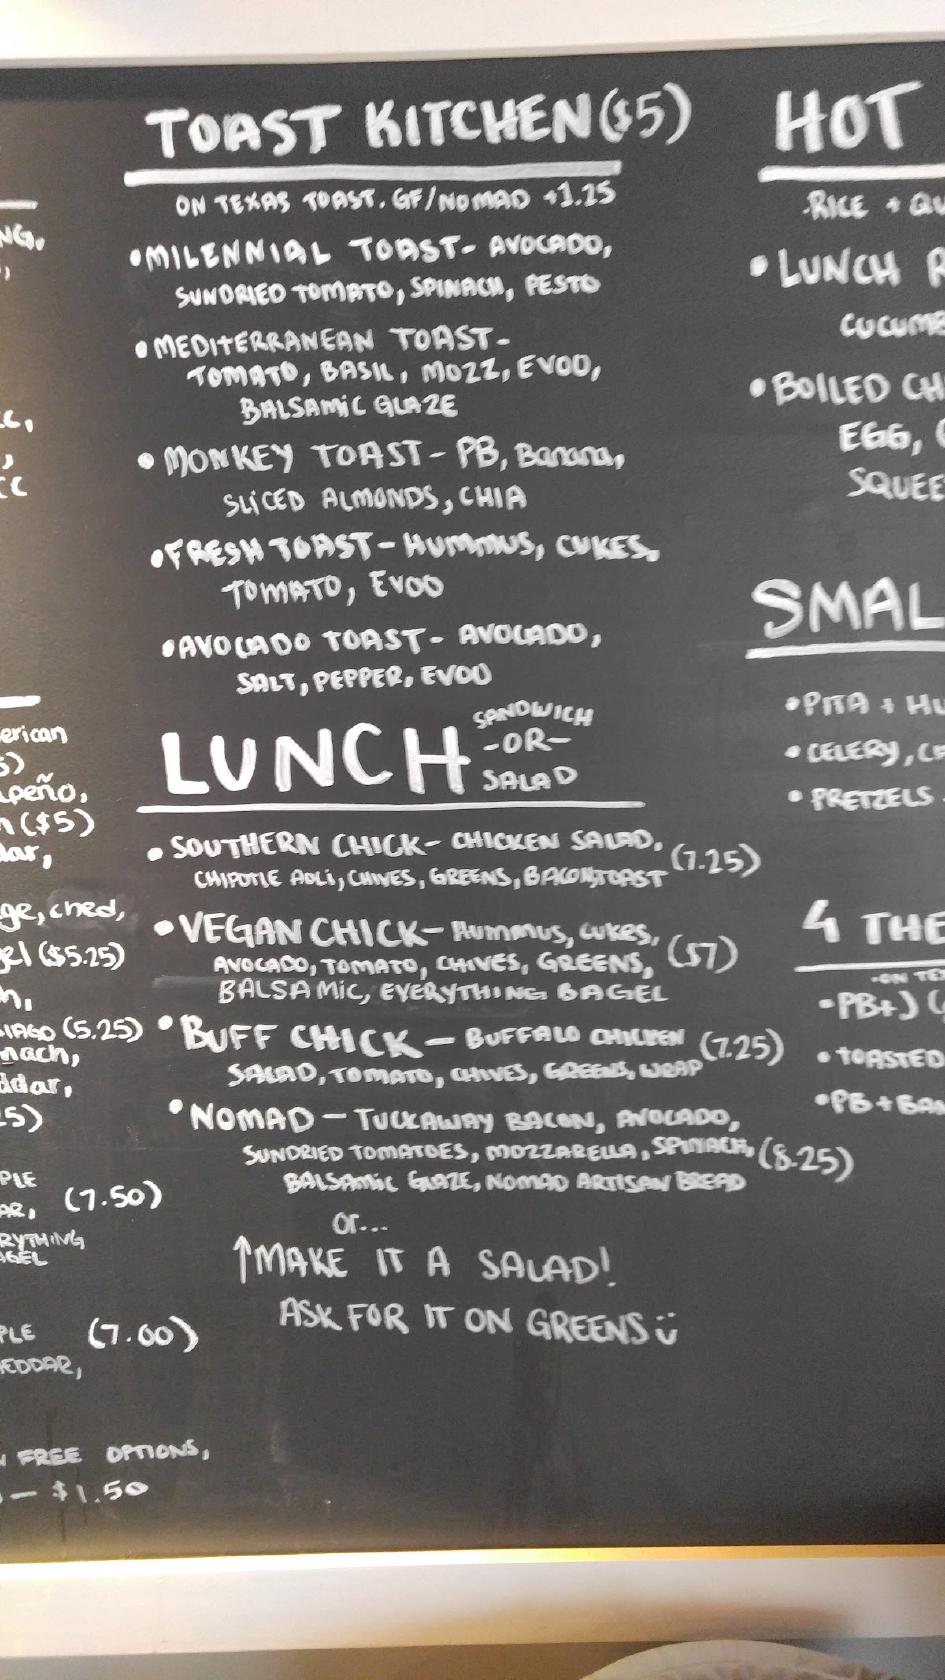 TOAST KITCHEN ($5)
ON TEXAS TOAST. GF/NOMAD +1.25
•MILENNIAL TOAST- AVOCADO,
SUNDRIED TOMATO, SPINACH, PESTO
•MEDITERRANEAN TOAST-
TOMATO, BASIL, MOZZ, EVOO,
BALSAMIC GLAZE
•MONKEY TOAST- PB, Banana,
SLICED ALMONDS, CHIA
•FRESH TOAST- HUMMUS, CUKES,
TOMATO, EVOO
•AVOCADO TOAST- AVOCADO,
SALT, PEPPER, EVOO
LUNCH SANDWICH
-OR-
SALAD
•SOUTHERN CHICK- CHICKEN SALAD, (7.25)
CHIPOTLE AOLI, CHIVES, GREENS, BACON, TOAST
•VEGAN CHICK- HUMMUS, CUKES,
AVOCADO, TOMATO, CHIVES, GREENS, ($7)
BALSAMIC, EVERYTHING BAGEL
•BUFF CHICK- BUFFALO CHICKEN (7.25)
SALAD, TOMATO, CHIVES, GREENS, WRAP
•NOMAD- TUCKAWAY BACON, AVOCADO,
SUNDRIED TOMATOES, MOZZARELLA, SPINACH, (8.25)
BALSAMIC GLAZE, NOMAD ARTISAN BREAD
or...
↑MAKE IT A SALAD!
ASK FOR IT ON GREENS
erican
peño,
($5)
dar,
ched,
($5.25)
(5.25)
ddar,
(7.50)
(7.00)
FREE OPTIONS,
- $1.50
HOT
RICE +
•LUNCH
•BOILED
EGG,
•PITA +
•CELERY,
•PRETZELS
4 THE
•PB+J
•TOASTED
•PB+